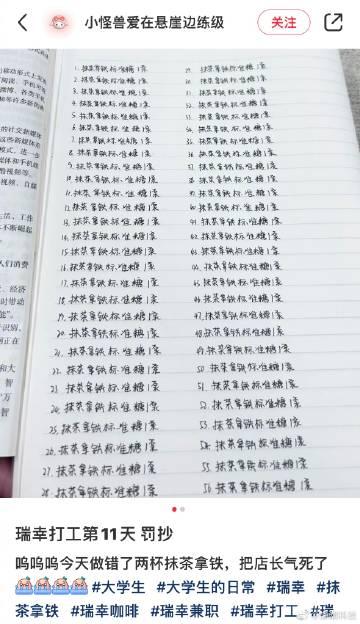 小怪兽爱在悬崖边练级
关注
的社交新媒体
这些新媒体
视频、自媒
生活、工作
不断崛起
人们消费
、经济
时带动
能”。
识别,
正在
和大
智
“万
智
1. 抹茶拿铁标准糖1泵
2. 抹茶拿铁标准糖1泵
3. 抹茶拿铁标准糖1泵
4. 抹茶拿铁标准糖1泵
5. 抹茶拿铁标准糖1泵
6. 抹茶拿铁标准糖1泵
7. 抹茶拿铁标准糖1泵
8. 抹茶拿铁标准糖1泵
9. 抹茶拿铁标准糖1泵
10. 抹茶拿铁标准糖1泵
11. 抹茶拿铁标准糖1泵
12. 抹茶拿铁标准糖1泵
13. 抹茶拿铁标准糖1泵
14. 抹茶拿铁标准糖1泵
15. 抹茶拿铁标准糖1泵
16. 抹茶拿铁标准糖1泵
17. 抹茶拿铁标准糖1泵
18. 抹茶拿铁标准糖1泵
19. 抹茶拿铁标准糖1泵
20. 抹茶拿铁标准糖1泵
21. 抹茶拿铁标准糖1泵
22. 抹茶拿铁标准糖1泵
23. 抹茶拿铁标准糖1泵
24. 抹茶拿铁标准糖1泵
25. 抹茶拿铁标准糖1泵
26. 抹茶拿铁标准糖1泵
27. 抹茶拿铁标准糖1泵
28. 抹茶拿铁标准糖1泵
29. 抹茶拿铁标准糖1泵
30. 抹茶拿铁标准糖1泵
31. 抹茶拿铁标准糖1泵
32. 抹茶拿铁标准糖1泵
33. 抹茶拿铁标准糖1泵
34. 抹茶拿铁标准糖1泵
35. 抹茶拿铁标准糖1泵
36. 抹茶拿铁标准糖1泵
37. 抹茶拿铁标准糖1泵
38. 抹茶拿铁标准糖1泵
39. 抹茶拿铁标准糖1泵
40. 抹茶拿铁标准糖1泵
41. 抹茶拿铁标准糖1泵
42. 抹茶拿铁标准糖1泵
43. 抹茶拿铁标准糖1泵
44. 抹茶拿铁标准糖1泵
45. 抹茶拿铁标准糖1泵
46. 抹茶拿铁标准糖1泵
47. 抹茶拿铁标准糖1泵
48. 抹茶拿铁标准糖1泵
49. 抹茶拿铁标准糖1泵
50. 抹茶拿铁标准糖1泵
51. 抹茶拿铁标准糖1泵
52. 抹茶拿铁标准糖1泵
53. 抹茶拿铁标准糖1泵
54. 抹茶拿铁标准糖1泵
55. 抹茶拿铁标准糖1泵
56. 抹茶拿铁标准糖1泵
瑞幸打工第11天 罚抄
呜呜呜今天做错了两杯抹茶拿铁，把店长气死了
#大学生 #大学生的日常 #瑞幸 #抹
茶拿铁 #瑞幸咖啡 #瑞幸兼职 #瑞幸打工 #瑞